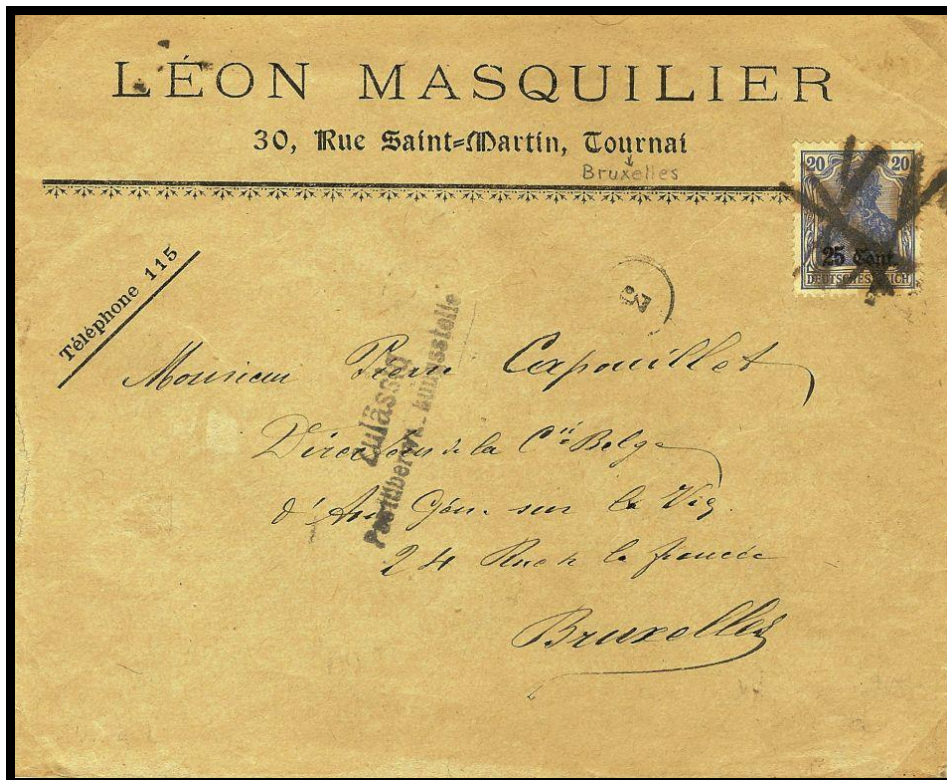 LÉON MASQUILIER
30, Rue Saint=Martin, Tournai
Bruxelles
20 20
25 Cent.
DEUTSCHES REICH
Téléphone 115
3
Zulässig
Postüberw.-
Monsieur Pierre Capouillet
Directeur de la Cie Belge
d'Ass Gén. sur la Vie
24 Rue de la
Bruxelles